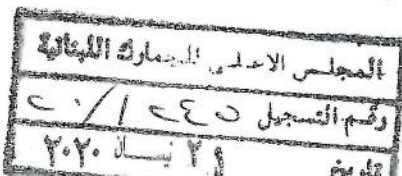 المجلس الاعلى للجمارك اللبنانية
رقم التسجيل ٢٠/١٢٤٥
تاريخ ٢ نيسان ٢٠٢٠